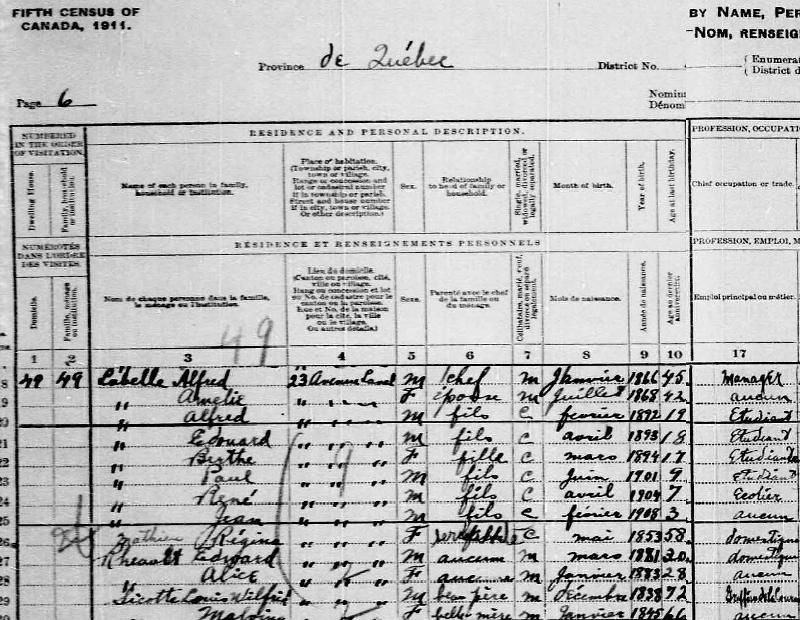 FIFTH CENSUS OF
CANADA, 1911.
BY NAME, PER
NOM, RENSEIG
Province de Québec
District No.
Enumerat
District d
Page 6
Nomina
Dénom
NUMBERED
IN THE ORDER
OF VISITATION.
RESIDENCE AND PERSONAL DESCRIPTION.
PROFESSION, OCCUPATI
Dwelling House.
Family, household or institution.
Name of each person in family,
household or institution.
Place of habitation.
(Township or parish, city,
town or village.
Range or concession and
lot or cadastral number
if in township or parish.
Street and house number
if in city, town or village.
Or other description.)
Sex.
Relationship
to head of family or
household.
Single, married, widowed, divorced or legally separated.
Month of birth.
Year of birth.
Age at last birthday.
Chief occupation or trade.
NUMÉROTÉS
DANS L'ORDRE
DES VISITES.
RÉSIDENCE ET RENSEIGNEMENTS PERSONNELS
PROFESSION, EMPLOI, M
Domicile.
Famille, ménage ou institution.
Nom de chaque personne dans la famille,
le ménage ou l'institution.
Lieu du domicile.
(Canton ou paroisse, cité,
ville ou village.
Rang ou concession et lot
ou No. de cadastre pour le
canton ou la paroisse.
Rue et No. de la maison
pour la cité, la ville
ou le village.
Ou autres détails.)
Sexe.
Parenté avec le chef
de la famille ou
du ménage.
Célibataire, marié, veuf, divorcé ou séparé légalement.
Mois de naissance.
Année de naissance.
Age au dernier anniversaire.
Emploi principal ou métier.
49
1 2 3 4 5 6 7 8 9 10 17
8 49 49 Labelle Alfred 23 Avenue Laval M chef M Janvier 1866 45 Manager
9 " Amelie " " " F épouse M Juillet 1868 42 aucun
20 " Alfred " " " M fils C février 1892 19 Etudiant
21 " Edouard " " " M fils C avril 1893 18 Etudiant
22 " Berthe " " " F fille C mars 1894 17 Etudiante
23 " Paul " " " M fils C Juin 1901 9 etudiant
24 " René " " " M fils C avril 1904 7 Ecolier
25 " Jean " " " M fils C février 1908 3 aucun
26 Mathieu Régina " " " F C mai 1853 58 domestique
27 Rheault Edward " " " M aucun M mars 1881 30 domestique
28 " Alice " " F M Janvier 1883 28 aucun
29 Louis Wilfrid " " M beau père M décembre 1838 72
" Malvina " " F belle mère M Janvier 1845 66 aucun